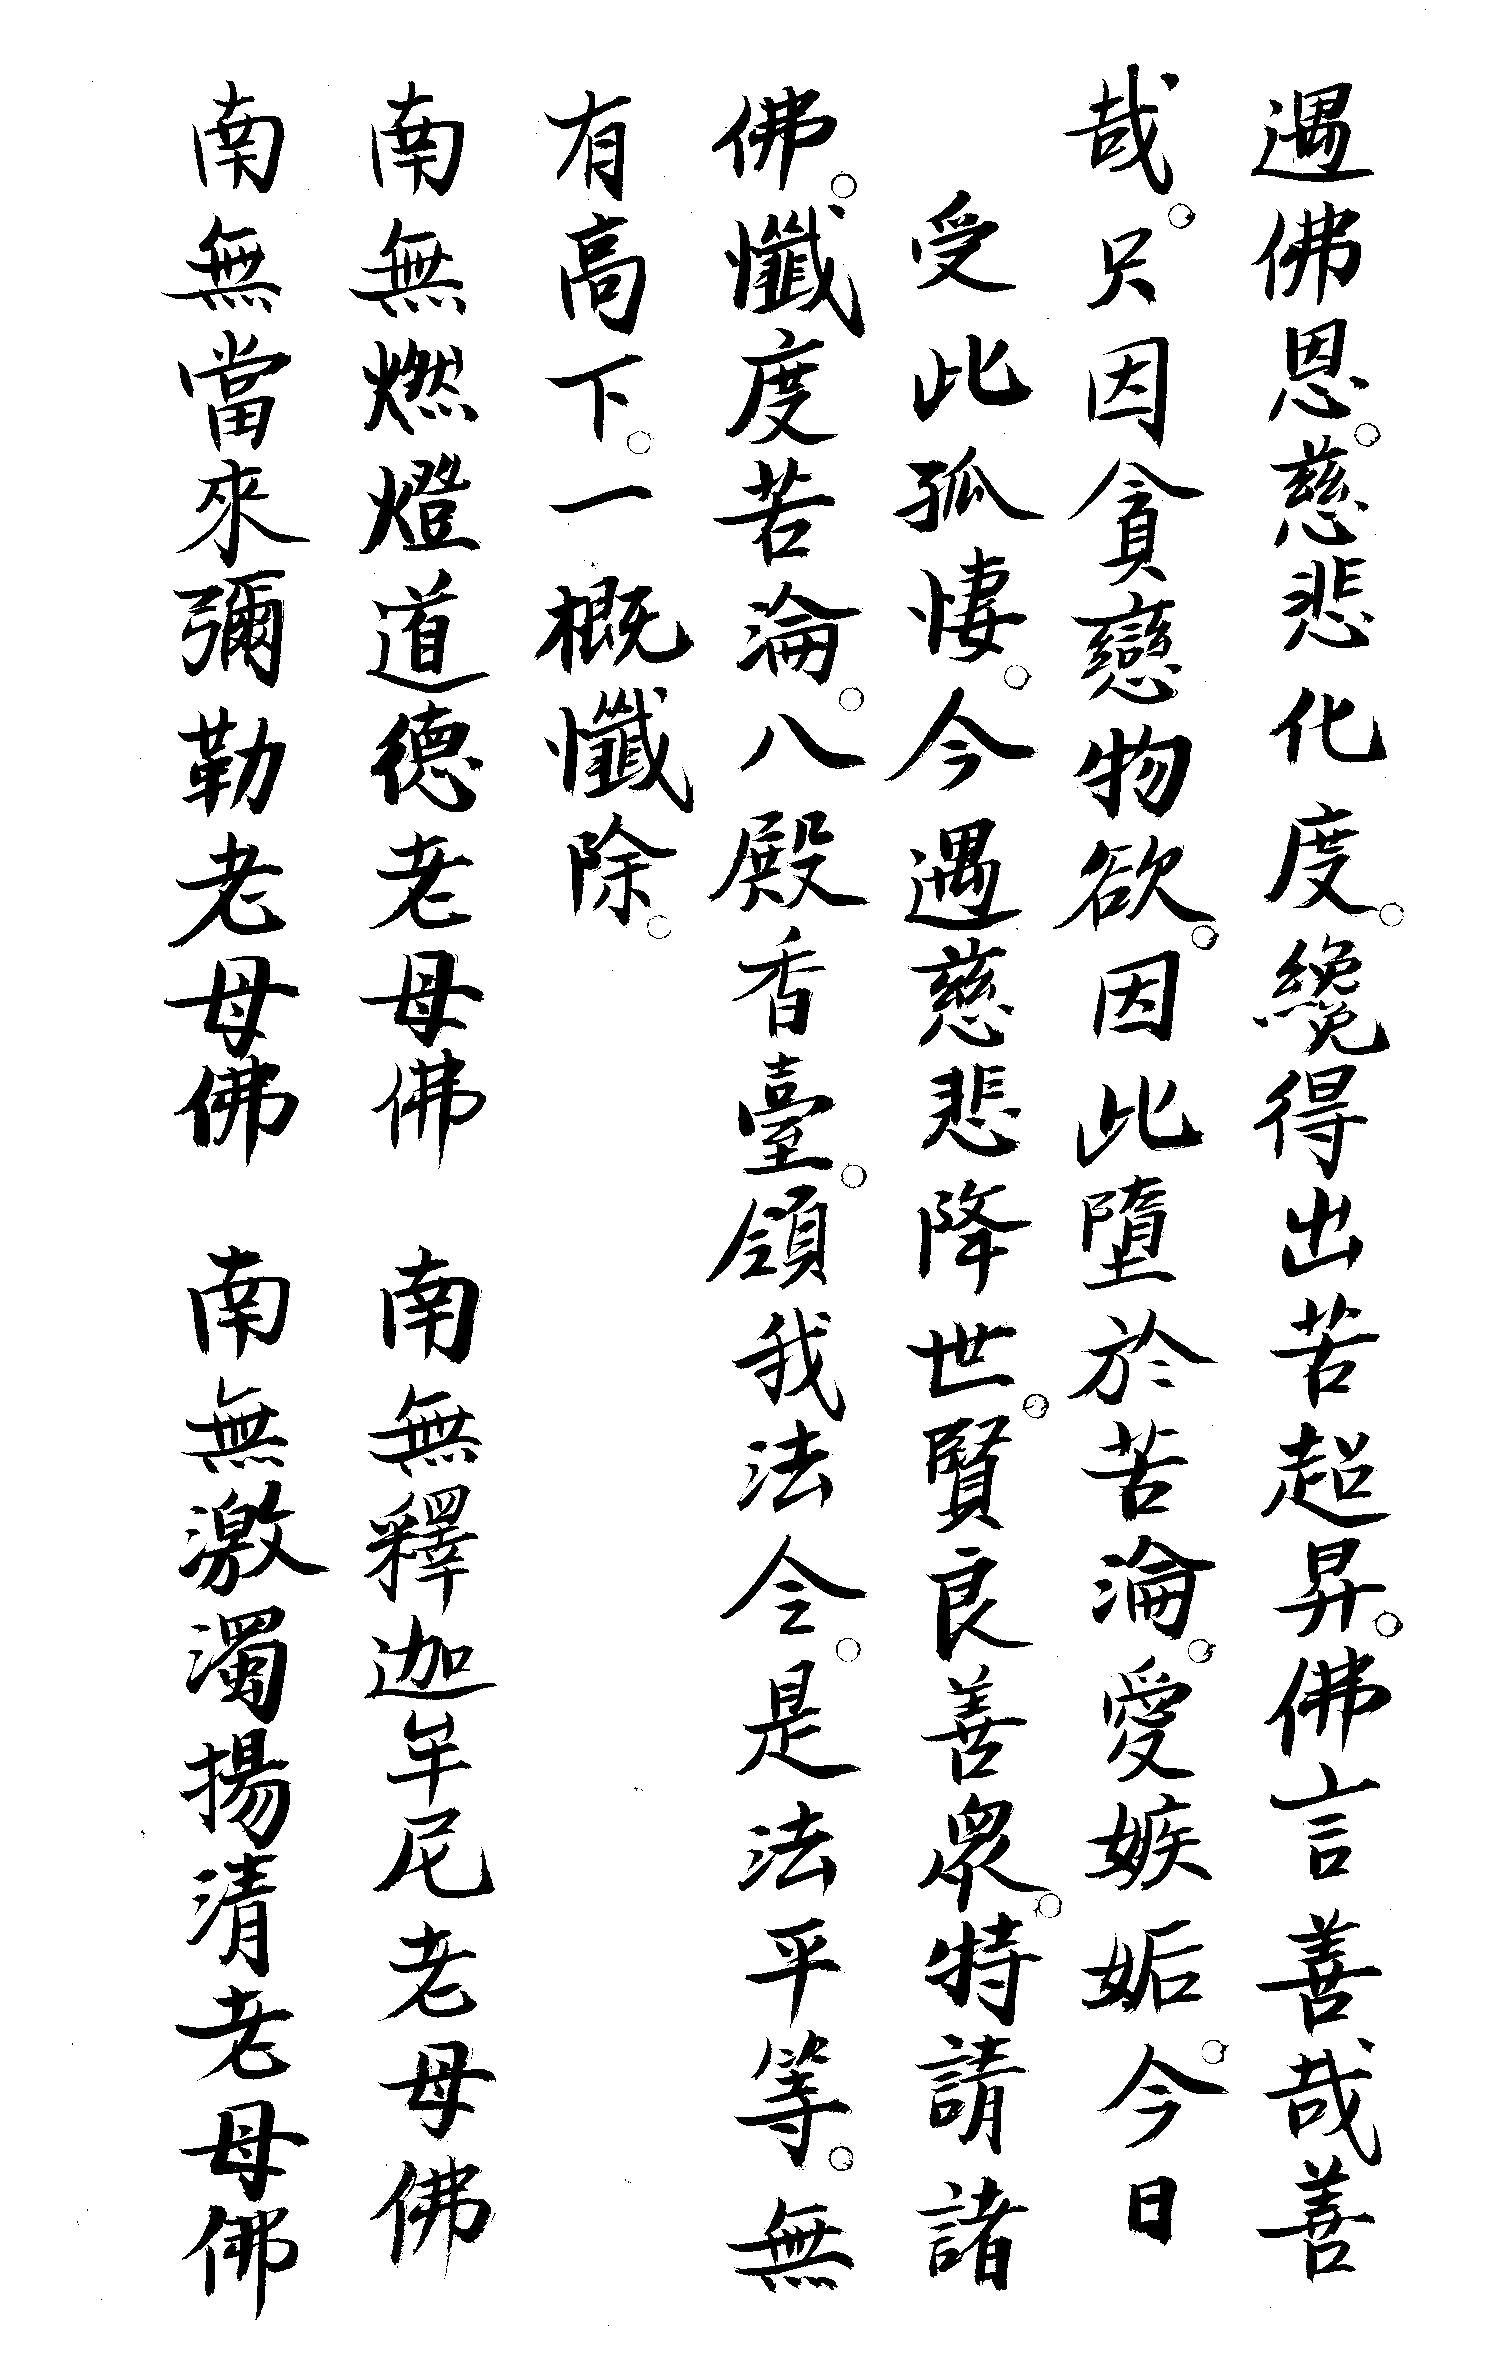 遇佛恩。慈悲化度。纔得出苦超昇。佛言善哉善
哉。只因貪戀物欲。因此墮於苦淪。愛嫉姤。今日
受此孤悽。今遇慈悲降世。賢良善衆。特請諸
佛。懺度苦淪。八殿香臺。領我法令。是法平等。無
有高下。一概懺除。
南無燃燈道德老母佛　南無釋迦牟尼老母佛
南無當來彌勒老母佛　南無激濁揚清老母佛